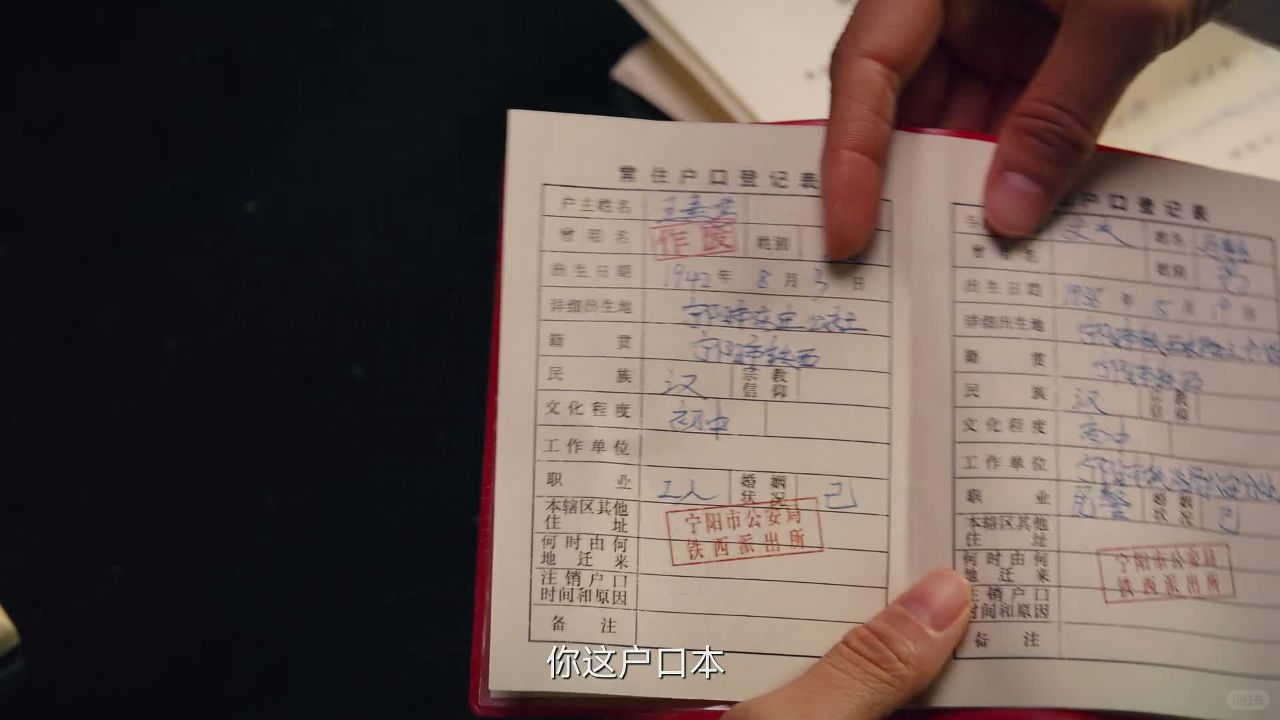 常住户口登记表
户主姓名
曾用名 作废 性别
出生日期 1942年8月3日
详细出生地 宁阳市安定公社
籍贯 宁阳市铁西
民族 汉 宗教信仰
文化程度 初中
工作单位
职业 工人 婚姻状况 已
本辖区其他住址
宁阳市公安局
铁西派出所
何时由何地迁来
注销户口时间和原因
备注
户口登记表
姓名
曾用名 性别 男
出生日期 年 5月19日
详细出生地 宁阳市铁西
籍贯 宁阳市铁西
民族 汉 宗教信仰
文化程度 高中
工作单位 宁阳市铁西
职业 民警 婚姻状况 已
本辖区其他住址
宁阳市公安局
铁西派出所
何时由何地迁来
注销户口时间和原因
备注
你这户口本
小红书